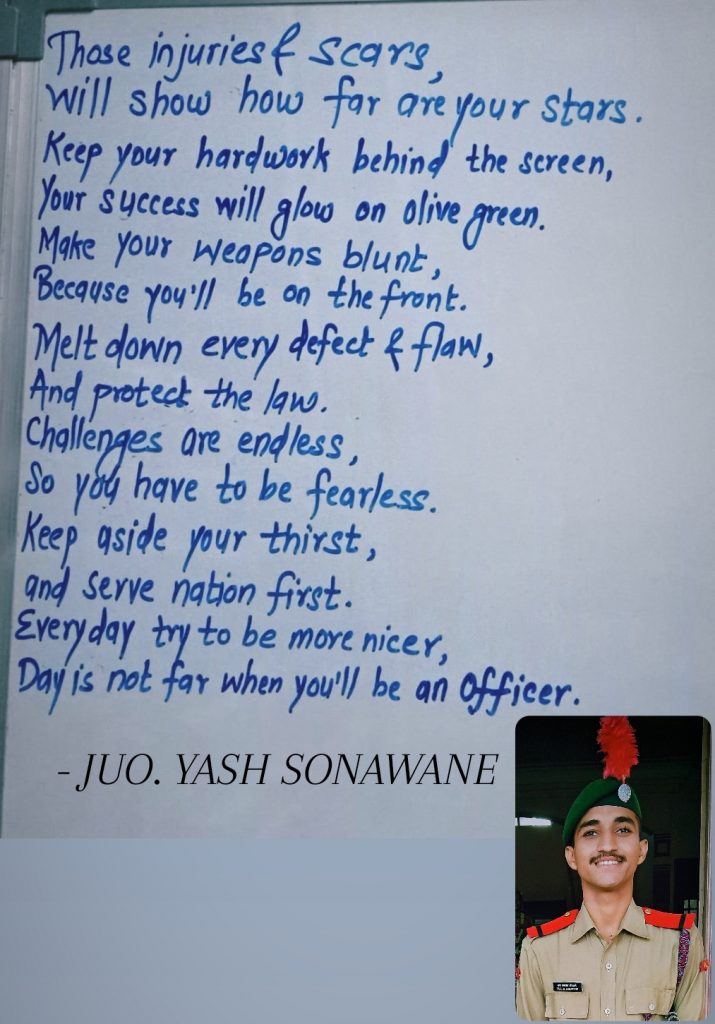 Those injuries & scars,
Will show how far are your stars.
Keep your hardwork behind the screen,
Your success will glow on olive green.
Make your weapons blunt,
Because you'll be on the front.
Melt down every defect & flaw,
And protect the law.
Challenges are endless,
So you have to be fearless.
Keep aside your thirst,
and serve nation first.
Everyday try to be more nicer,
Day is not far when you'll be an Officer.
- JUO. YASH SONAWANE